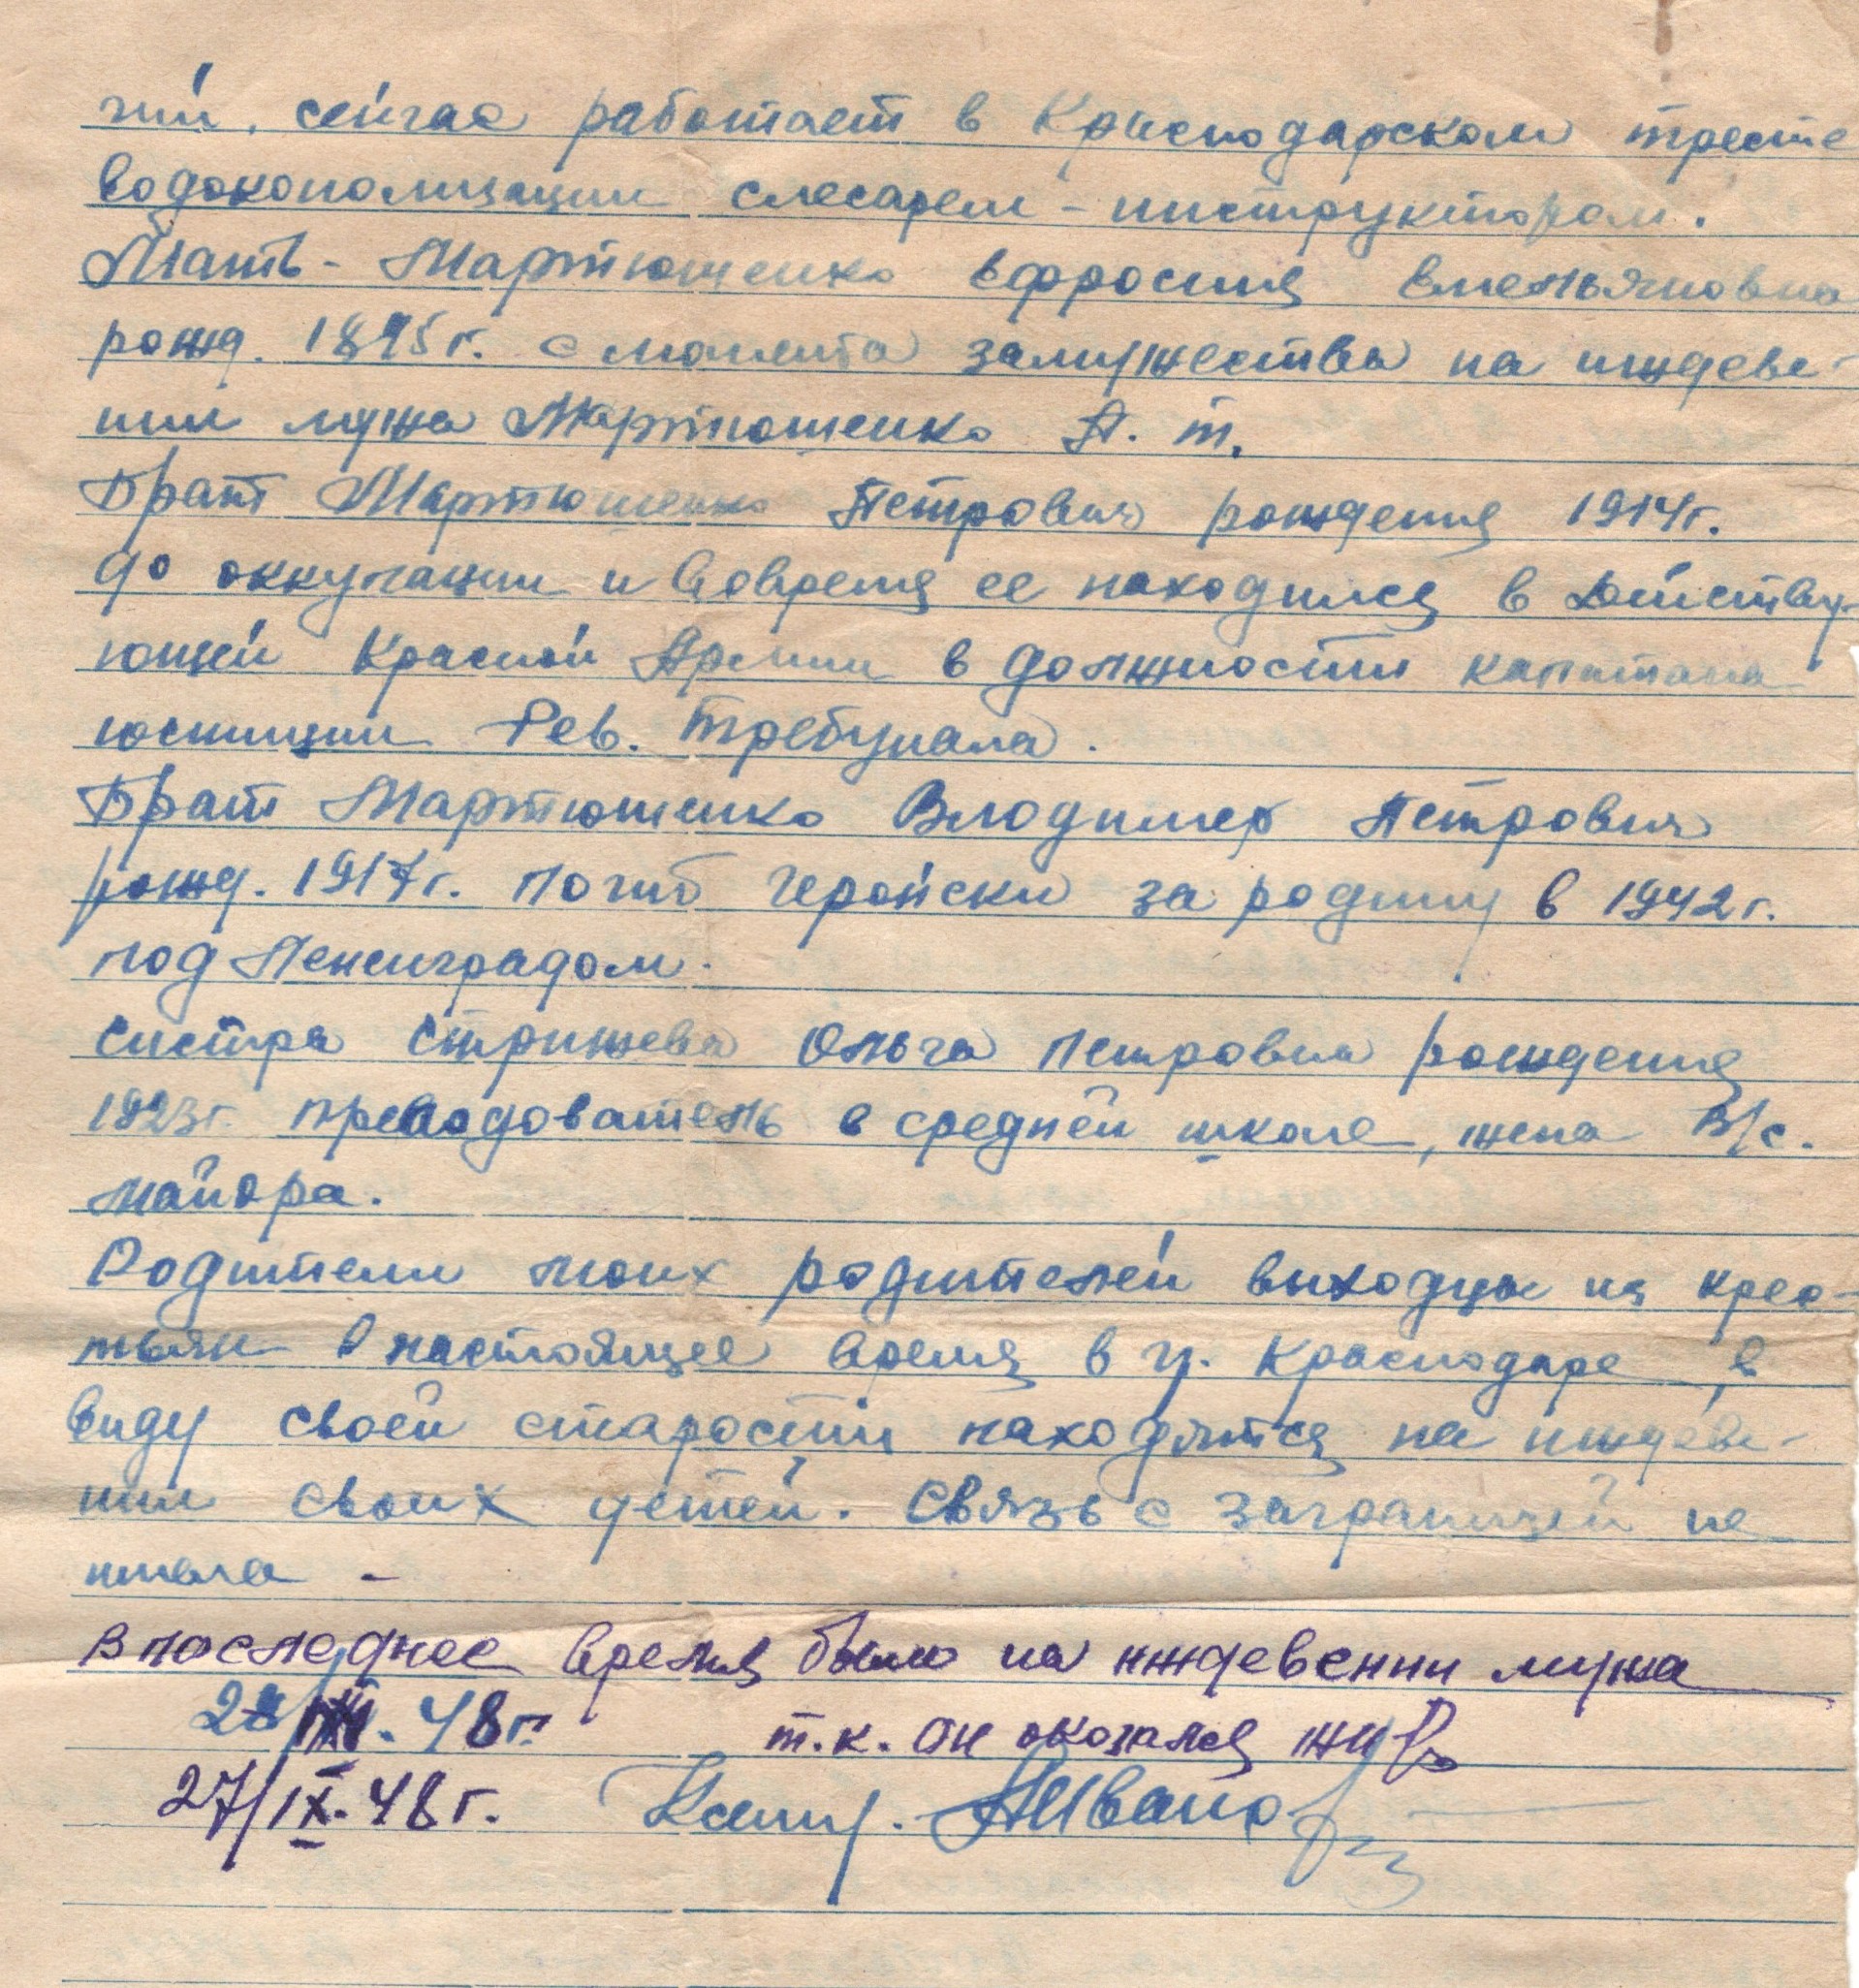 ний, сейчас работает в Краснодарском тресте
водоконолизации слесарем - инструктором.
Мать - Мартюшенко Ефросиия Емельяновна
рожд. 1895 г. с момента замужества на иждеве-
нии мужа Мартюшенко П. Т.
Брат Мартюшенко Петрович рождения 1914 г.
до оккупации и вовремя ее находился в Действу-
ющей Красной Армии в должности капитана
юстиции Рев. Требунала.
Брат Мартюшенко Владимер Петрович
рожд. 1917 г. погиб геройски за родину в 1942 г.
под Ленинградом.
Систра Стрижева Ольга Петровна рождения
1923 г. преподователь в средней школе, жена В/с.
майора.
Родители моих родителей выходцы из крес-
тьян в настоящее время в г. Краснодаре, в
виду своей старости находятся на иждеве-
нии своих детей. Связь с заграницей не
имела -
В последнее время была на иждевении мужа
28/ . 48 г. т.к. он оказался жив
27/IX. 48 г.